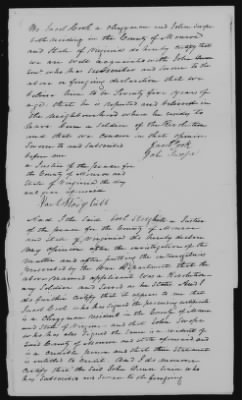 We Jacob Cook a Clergyman and John Swope
both residing in the County of Monroe
and State of Virginia do hereby certify that
we are well acquainted with John
who has subscribed and sworn to the
above or foregoing declaration that we
believe him to be Seventy five years of
age. that he is reputed and believed in
the Neighbourhood where he resides to
have been a soldier of the Revolution
and that we concur in that opinion
Sworn to and subscribed
before me
Jacob Cook
John Swope
a Justice of the peace for
the County of Monroe and
State of Virginia the day
and year aforesaid

And I the said a Justice
of the peace for the County of Monroe
and State of Virginia do hereby declare
my opinion after the investigation of the
matter and after putting the interrogatories
prescribed by the War Department that the
above named applicant was a Revolution
ary Soldier and served as he states And I
do further certify that it appears to me that
Jacob Cook who has signed the preceding certificate
is a Clergyman resident in the County of Monroe
and State of Virginia and that John Swope
who has also signed the same is a resident of
said County of Monroe and State aforesaid and
is a credible person and that their statement
is entitled to credit. And I do moreover
certify that the said John
has subscribed and sworn to the foregoing